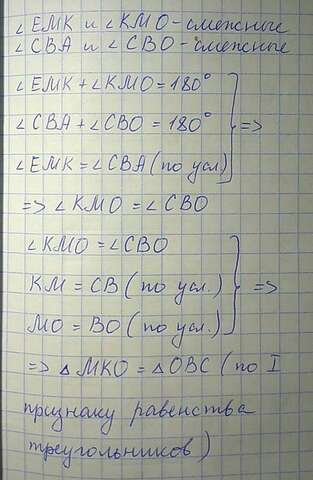 ∠EMK и ∠KMO - смежные
∠CBA и ∠CBO - смежные
∠EMK + ∠KMO = 180°
∠CBA + ∠CBO = 180° =>
∠EMK = ∠CBA (по усл.)
=> ∠KMO = ∠CBO
∠KMO = ∠CBO
KM = CB (по усл.) =>
MO = BO (по усл.)
=> △MKO = △OBC (по I
признаку равенства
треугольников)